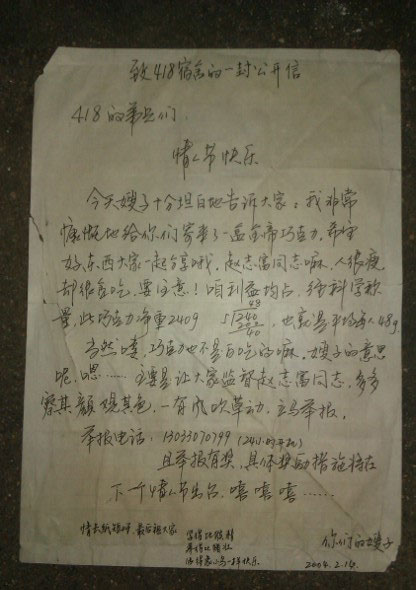 致418宿舍的一封公开信
418的弟兄们,
情人节快乐
今天嫂子十分坦白地告诉大家:我非常
慷慨地给你们寄来了一盒金帝巧克力,希望
好东西大家一起分享哦,赵志富同志嘛,人很瘦,
却很贪吃,要注意!咱利益均占,经科学称
量,此巧克力净重240g
48
5√240
200
40
,也就是平均每人48g
当然喽,巧克力也不是白吃的嘛,嫂子的意思
呢,嗯……主要是让大家监督赵志富同志,多多
察其颜观其色,一有风吹草动,立马举报,
举报电话:13033070799(24小时开机)
且举报有奖,具体奖励措施将在
下一个情人节出台,嘻嘻嘻……
最后祝大家
你们的嫂子
2004.2.14.